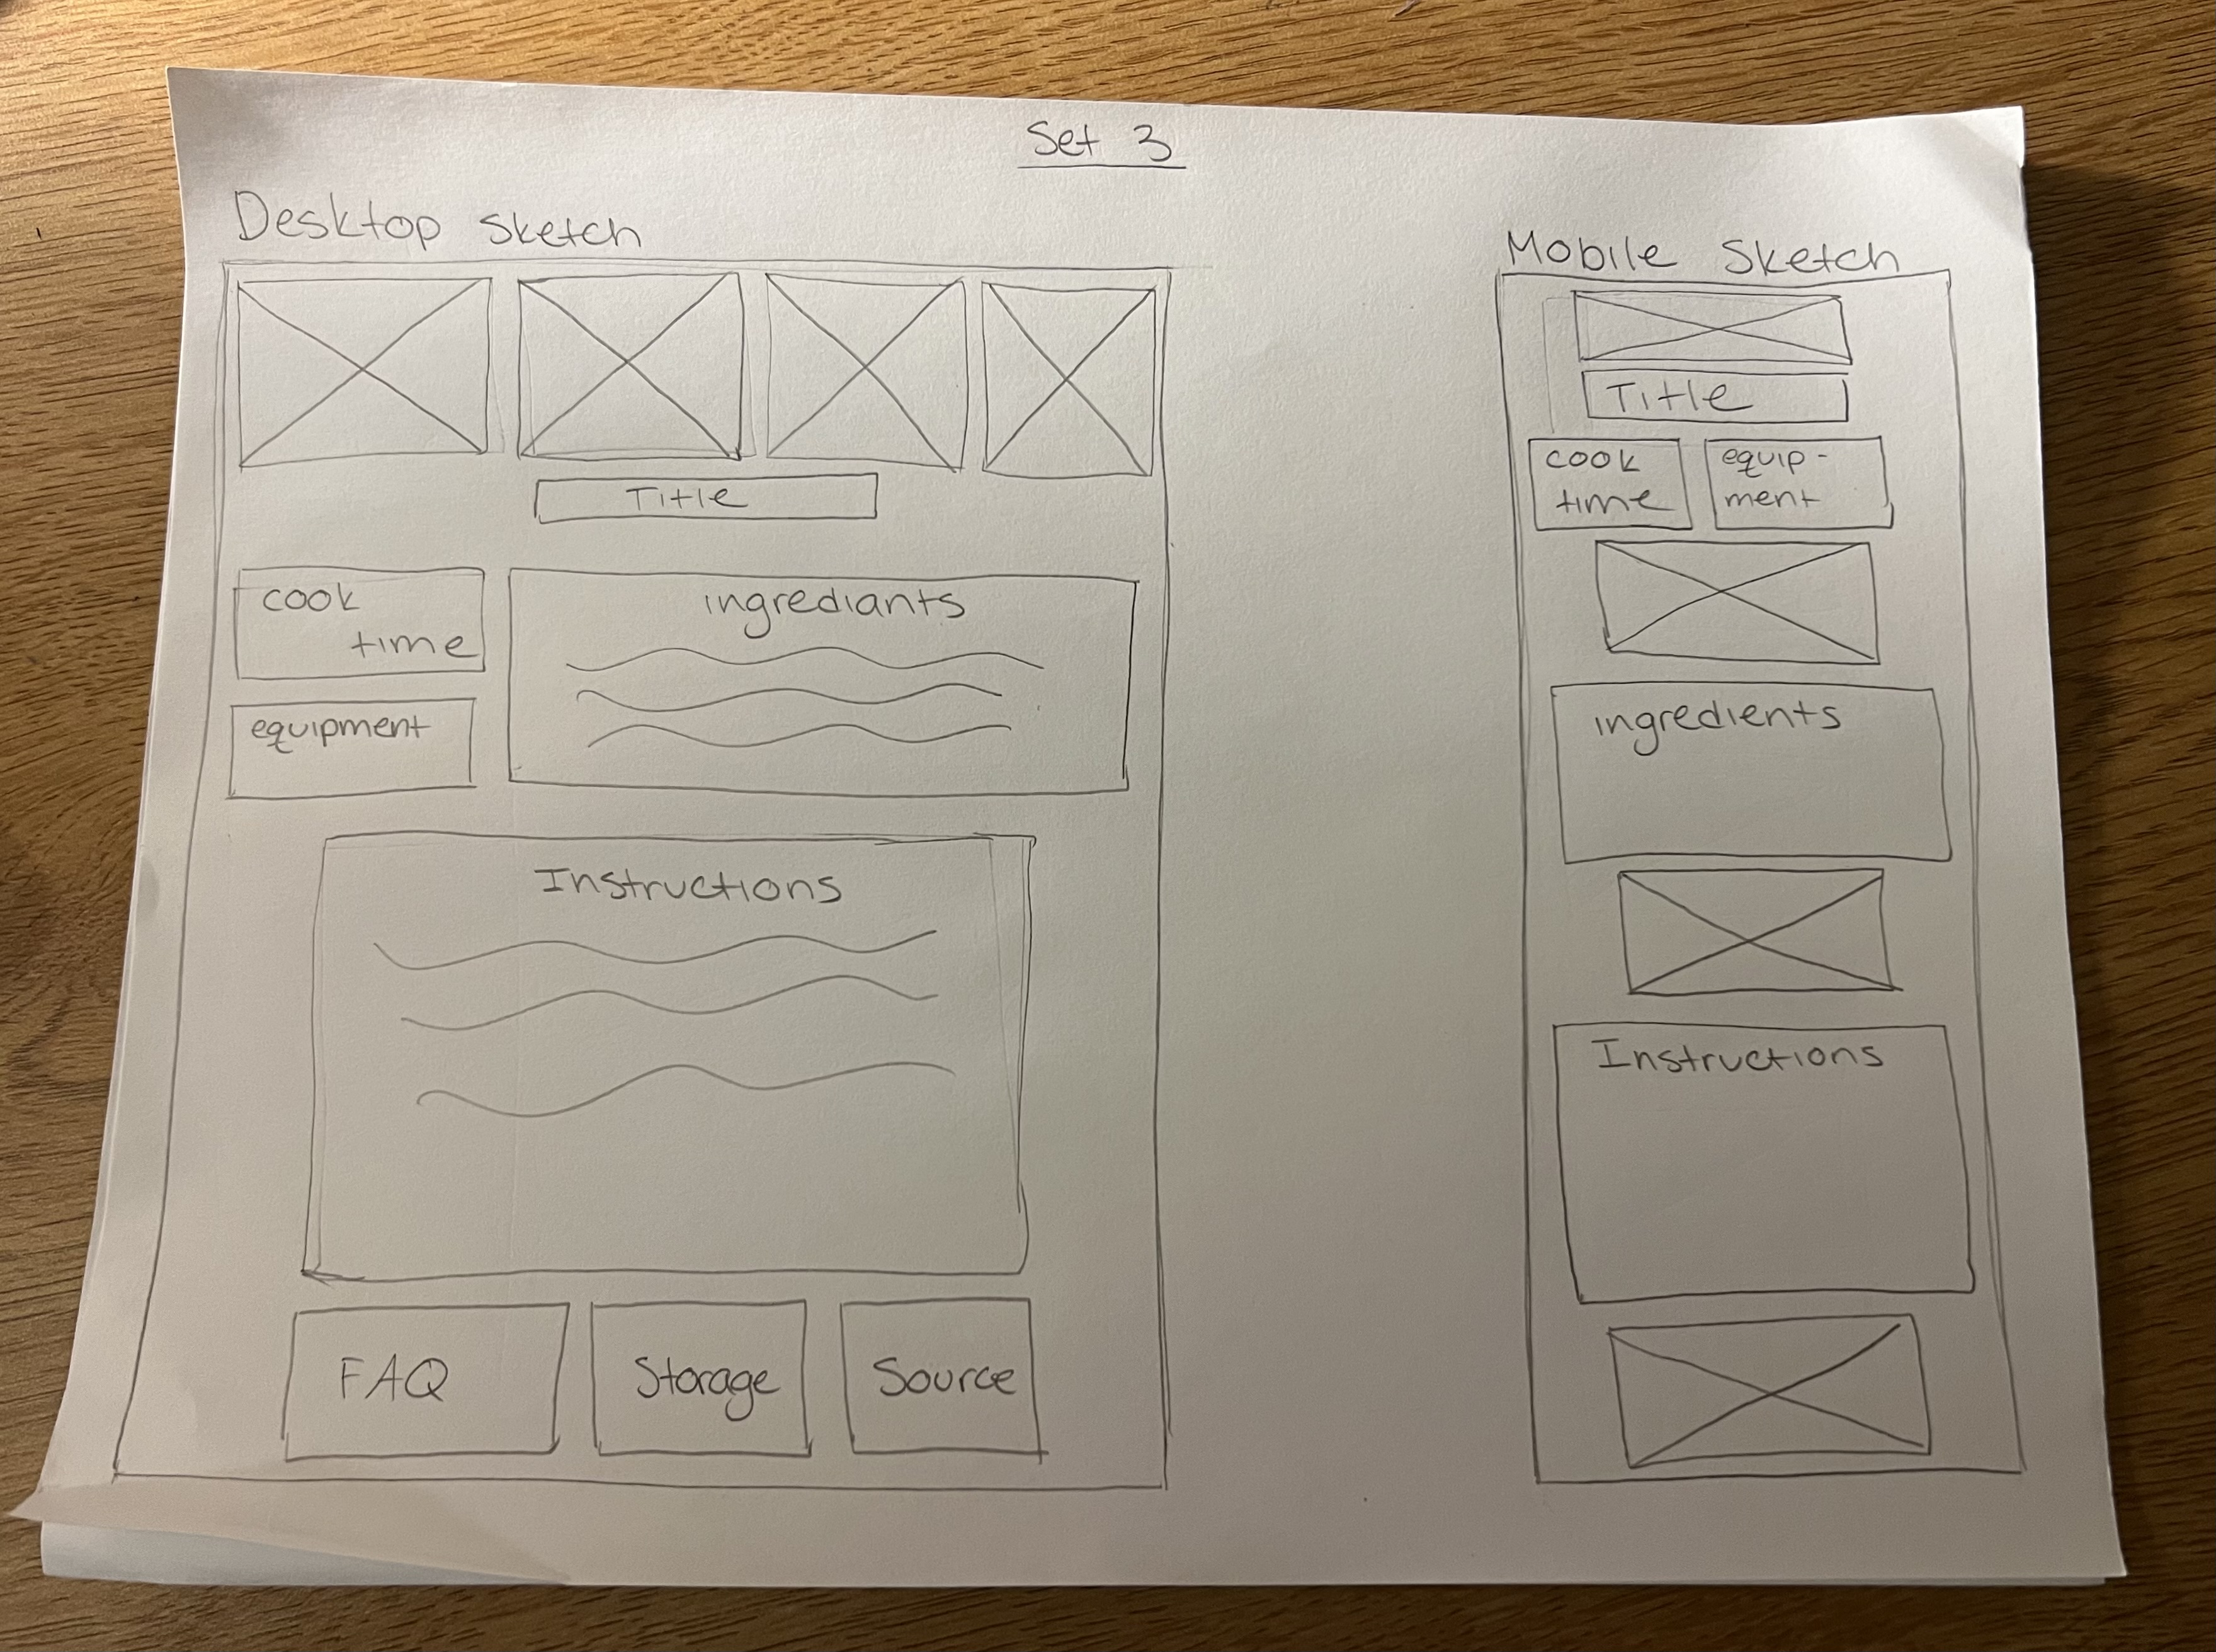 Set 3
Desktop Sketch
Title
cook
time
ingrediants
equipment
Instructions
FAQ
Storage
Source
Mobile Sketch
Title
cook
time
equip-
ment
ingredients
Instructions